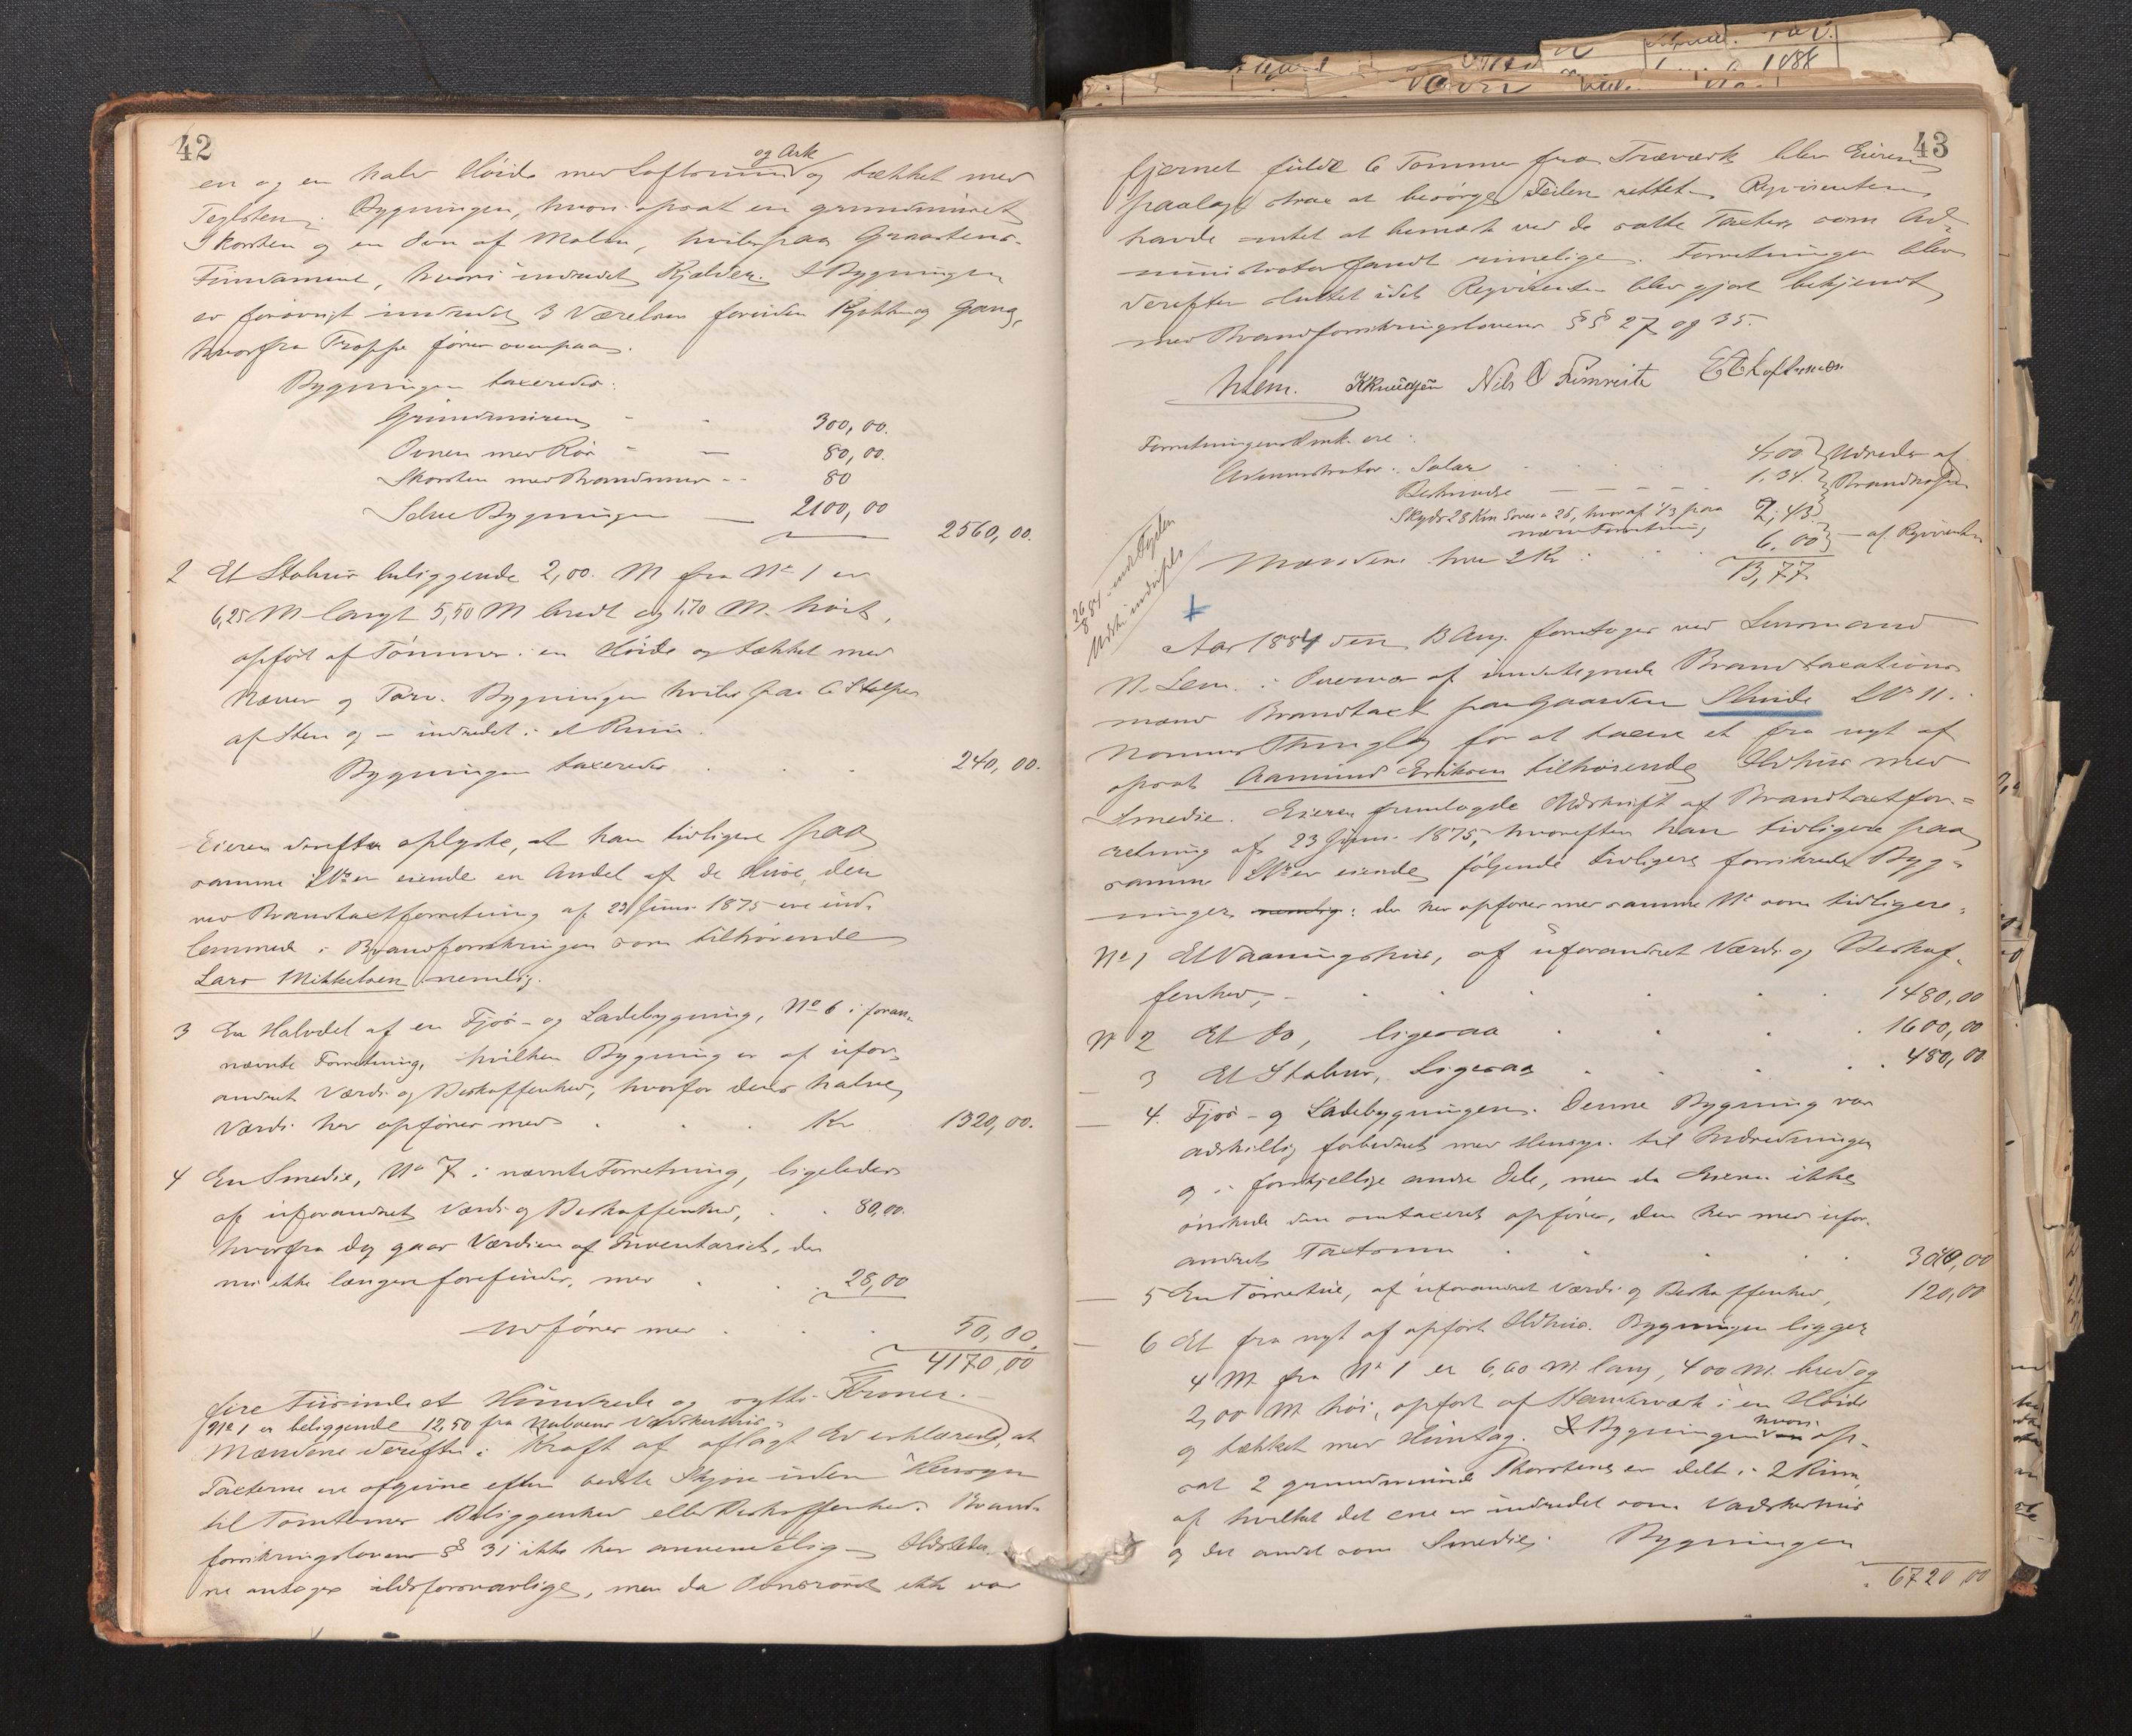 42
og Ark
en og en halv Höide med Loftsrum og tækket med
Teglsten. Bygningen, hvori opsat en grundmuret
Skorsten og en Ovn af Malm, hviler paa Graastens-
Fundament, hvori indredet Kjælder. I Bygningen
er forövrigt indredet 3 Værelser foruden Kjökken og Gang,
hvorfra Trappe förer ovenpaa.
Bygningen taxeredes:
Grundmuren - - 300,00.
Ovnen med Rör - - 80,00.
Skorsten med Brandmur - - 80
Selve Bygningen — 2100,00
2560,00.
2 Et Stabur beliggende 2,00 M fra No 1 er
6,25 M langt 5,50 M bredt og 1,70 M. höit,
opfört af Tömmer i en Höide og tækket med
Næver og Torv. Bygningen hviler paa 6 Stolper
af Sten og - indredet i et Rum.
Bygningen taxeredes . . . 240,00.
Eieren derefter oplyste, at han tidligere paa
samme LNr er eiende en Andel af de Huse, der
ved Brandtaxtforretning af 23 Juni 1875 ere ind-
lemmede i Brandforsikringen som tilhörende
Lars Mikkelsen nemlig.
3 En Halvdel af en Fjös- og Ladebygning, No 6 i foran-
nævnte Forretning, hvilken Bygning er af ufor-
andret Værdi og Beskaffenhed, hvorfor dens halve
Værdi her opföres med . . . Kr 1320,00.
4 En Smedie, No 7 i nævnte Forretning, ligeledes
af uforandret Værdi og Beskaffenhed, . . 80,00.
hvorfra dog gaar Værdien af Inventariet, der
nu ikke længere forefindes, med . . 28,00
Udföres med . . . 50,00.
4170,00
fire Tusinde et Hundrede og sytti Kroner.
No 1 er beliggende 12,50 fra Naboens Vaskerhus.
Mændene derefter i Kraft af aflagt Ed erklærede, at
Taxterne ere afgivne efter bedste Skjön uden Hensyn
til Tomternes Beliggenhed eller Beskaffenhed. Brand-
forsikringslovens § 31 ikke her anvendelig - Ildsteder-
ne antages ildsforsvarlige, men da Ovnsröret ikke var
43
fjernet fulde 6 Tommer fra Træværk blev Eieren
paalagt strax at besörge Feilen rettet. Reqvirenten
havde intet at bemærke ved de satte Taxter, som Ad-
ministrator fandt rimelige. Forretningen blev
derefter sluttet idet Reqvirenten blev gjort bekjendt
med Brandforsikringslovens §§ 27 og 35.
NLem. KKnudsen Nils O Fimreite
Forretningens Omk. ere:
Administrator: Salar . . . . 4,00 } Udredes af
Beskrivelse — — — — 1,34. } Brandkassen
Skyds 28 Km Sövei a 26, hvoraf 1/3 paa 2,43
nævn Forretning,
Mændene hver 2 Kr: . . 6,00 } — af Reqvirenten
13,77.
26/8 84
Aar 1884 den 13 Aug. foretoges ved Lensmand
N. Lem i Overvær af undertegnede Brandtaxations-
mænd Brandtaxt paa Gaarden Slinde LNr 11.
Norums Thinglag for at taxere et fra nyt af
opsat Aamund Eriksen tilhörende Ildhus med
Smedie. Eieren fremlagde Udskrift af Brandtaxtfor-
retning af 23 Juni 1875, hvorefter han tidligere paa
samme LNr er eiende fölgende tidligere forsikrede Byg-
ninger nemlig: der her opföres med samme No som tidligere.
No 1 Et Vaaningshus, af uforandret Værdi og Beskaf-
fenhed, - . . . . . 1480,00
No 2 Et Do, ligesaa . . . . 1600,00
— 3 Et Stabur, Ligesaa . . . . 480,00.
— 4. Fjös- og Ladebygningen. Denne Bygning var
adskillig forbedret med Hensyn til Indredningen
og i forskjellige andre Dele, men da Eieren ikke
önskede den omtaxeret opföres, den her med ufor-
andret Taxtsum . . . . 3040,00
— 5 En Törrestue, af uforandret Værdi og Beskaffenhed, 120,00
— 6 Et fra nyt af opfört Ildhus. Bygningen ligger
4 M. fra No 1 er 6,60 M. lang, 4 00 M. bred og
2,00 M. höi, opfört af Stenderværk i en Höide
og tækket med Huntag. Bygningen hvori op-
sat 2 grundmurede Skorstene er delt i 2 Rum,
af hvilket det ene er indredet som Vadskerhus
og det andet som Smedie. Bygningen
6720,00